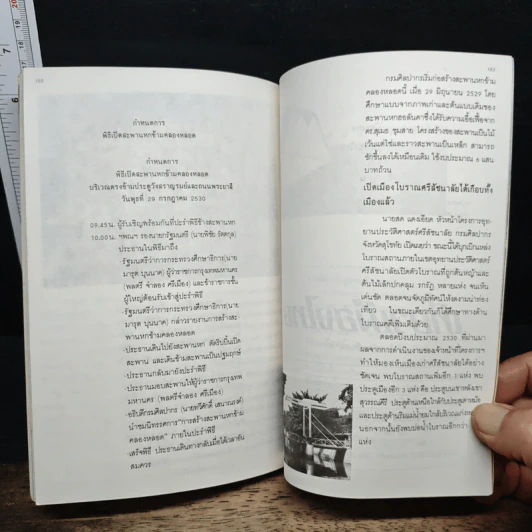 กำหนดการ
พิธีเปิดสะพานหกข้ามคลองหลอด
กำหนดการ
พิธีเปิดสะพานหกข้ามคลองหลอด
บริเวณตรงข้ามประตูวังสราญรมย์และถนนพระยาสี
วันพุธที่ 29 กรกฎาคม 2530
09.45น. ผู้รับเชิญพร้อมกันที่ปะรำพิธีข้างสะพานหก
10.00น. ฯพณฯ รองนายกรัฐมนตรี (นายพิชัย รัตตกุล)
ประธานในพิธีมาถึง
-รัฐมนตรีว่าการกระทรวงศึกษาธิการ(นาย
มารุต บุนนาค) ผู้ว่าราชการกรุงเทพมหานคร
(พลตรี จำลอง ศรีเมือง) และข้าราชการชั้น
ผู้ใหญ่ต้อนรับเข้าสู่ปะรำพิธี
-รัฐมนตรีว่าการกระทรวงศึกษาธิการ(นาย
มารุต บุนนาค) กล่าวรายงานการสร้างสะ
พานหกข้ามคลองหลอด
-ประธานเดินไปยังสะพานหก ตัดริบบิ้นเปิด
สะพาน และเดินข้ามสะพานเป็นปฐมฤกษ์
-ประธานกลับมายังปะรำพิธี
-ประธานมอบสะพานให้ผู้ว่าราชการกรุงเทพ
มหานคร (พลตรี จำลอง ศรีเมือง)
-อธิบดีกรมศิลปากร (นายทวีศักดิ์ เสนาณรงค์)
นำชมนิทรรศการ"การสร้างสะพานหกข้าม
คลองหลอด" ภายในปะรำพิธี
-เสร็จพิธี ประธานเดินทางกลับเมื่อได้เวลาอัน
สมควร
กรมศิลปากรเริ่มก่อสร้างสะพานหกข้าม
คลองหลอดนี้ เมื่อ 29 มิถุนายน 2529 โดย
ศึกษาแบบจากภาพเก่าและต้นแบบเดิมของ
สะพานหกฮอลันดาซึ่งได้รับความเอื้อเฟื้อจาก
ดร.สุเมธ ชุมสาย โครงสร้างของสะพานเป็นไม้
เว้นแต่โซ่และราวสะพานเป็นเหล็ก สามารถ
ชักขึ้นลงได้เหมือนเดิม ใช้งบประมาณ 6 แสน
บาทถ้วน
เปิดเมืองโบราณศรีสัชนาลัยได้เกือบทั้ง
เมืองแล้ว
นายสด แดงเอียด หัวหน้าโครงการอุท-
ยานประวัติศาสตร์ศรีสัชนาลัย กรมศิลปากร
จังหวัดสุโขทัย เปิดเผยว่า ขณะนี้ได้บุกเบิกแหล่ง
โบราณสถานภายในเขตอุทยานประวัติศาสตร์
ศรีสัชนาลัยเปิดตัวโบราณที่ถูกต้นหญ้าและ
ต้นไม้เล็กปกคลุม รกรัฏ หลายแห่ง จนเห็น
เด่นชัด ตลอดจนจัดภูมิทัศน์ให้งดงามน่าท่อง
เที่ยว ในขณะเดียวกันก็ได้ศึกษาทางด้าน
โบราณคดีเพิ่มเติมด้วย
ตลอดปีงบประมาณ 2530 ที่ผ่านมา
ผลจากการดำเนินงานของเจ้าหน้าที่โครงการฯ
ทำให้มองเห็นเมืองเก่าศรีสัชนาลัยได้อย่าง
ชัดเจน พบโบราณสถานเพิ่มอีก 1 แห่ง พบ
ประตูเมืองอีก 3 แห่ง คือ ประตูบนเขาหลังเขา
สุวรรณคีรี
และประตูด้านริมแม่น้ำยมใกล้กับ
นอกจากนั้นยังพบบ่อน้ำโบราณอีกกว่า
แห่ง